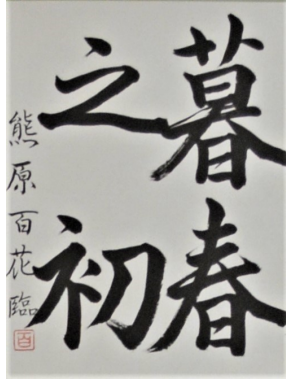 暮春
之初
熊原百花臨
百